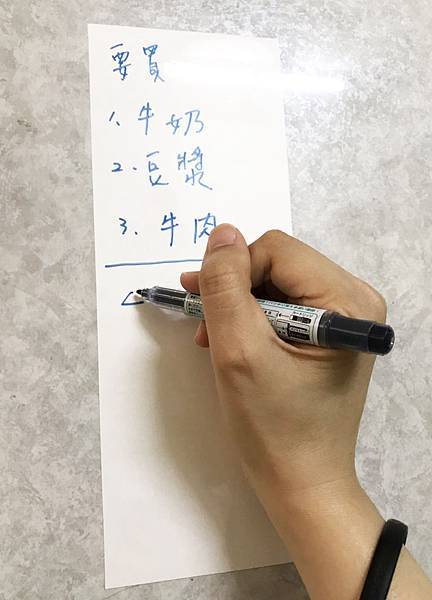 要買
1. 牛奶
2. 豆漿
3. 牛肉